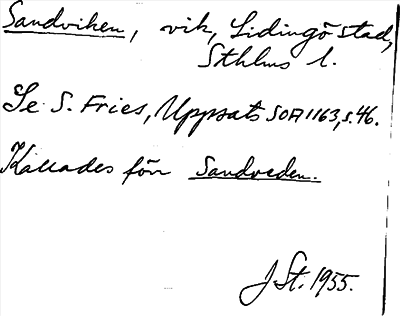 Sandviken, vik, Lidingö stad,
Sthlms l.
Se S. Fries, Uppsats SOA 1163, s. 46.
Kallades förr Sandveden.
J St. 1955.